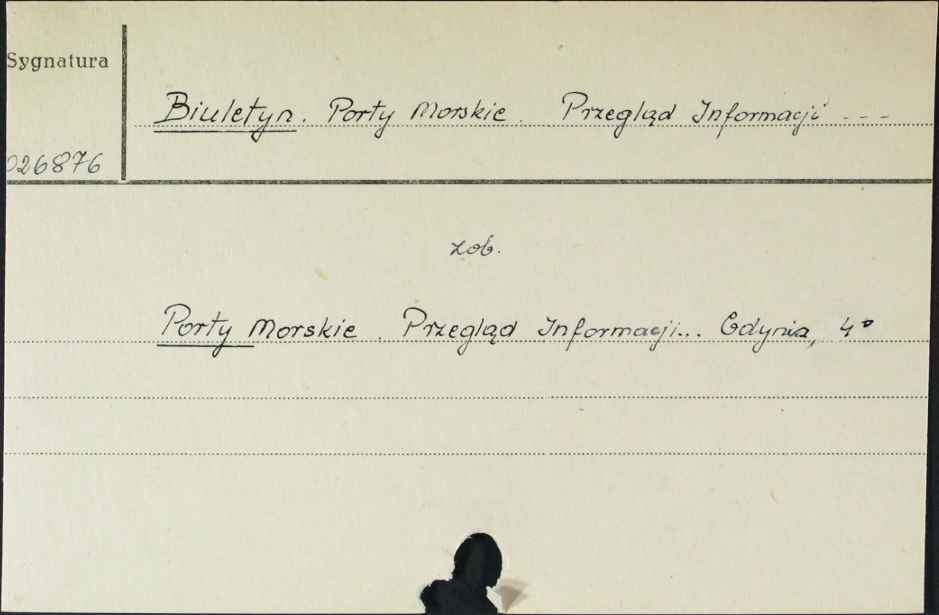 Sygnatura
Biuletyn. Porty Morskie. Przegląd Informacji ---
026876
zob.
Porty Morskie. Przegląd Informacji... Gdynia, 4°